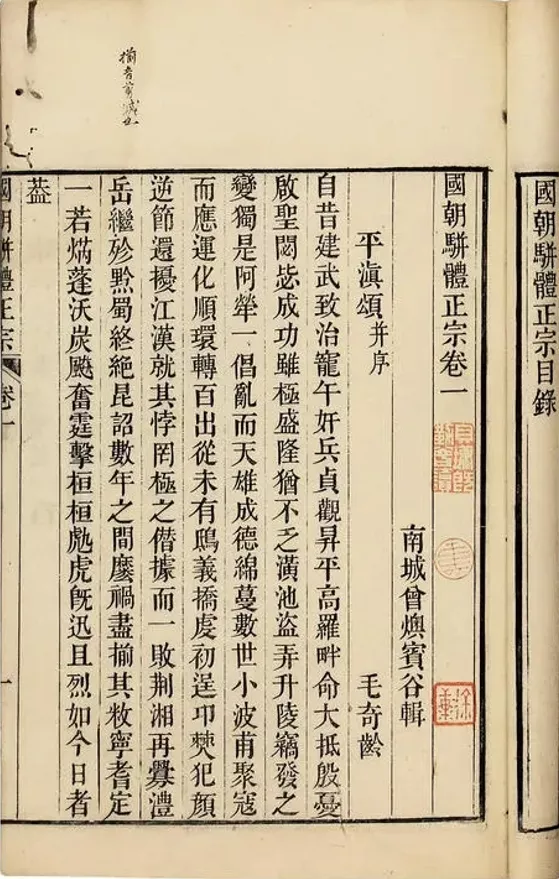 國朝駢體正宗目錄
國朝駢體正宗卷一
南城曾燠賓谷輯
平滇頌并序 毛奇齡
自昔建武致治寵午奸兵貞觀昇平高羅畔命大抵殷憂
啟聖閟毖成功雖極盛隆猶不乏潢池盜弄升陵竊發之
變獨是阿犖一倡亂而天雄成德綿蔓數世小波甫聚寇
而應運化順環轉百出從未有鴟義撟虔初逞卭僰犯顏
逆節還擾江漢就其悖罔極之僭據而一敗荆湘再釁澧
岳繼殄黔蜀終絶昆詔數年之間麼禍盡揃其敉寧耆定
一若焫蓬沃炭飈奮霆擊桓桓虎旣迅且烈如今日者
葢
國朝駢體正宗 卷一 一
揃音剪滅也